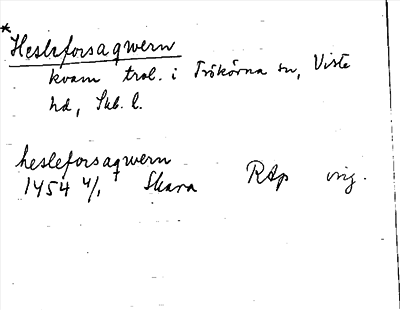 * Hesleforsaqwern
kvarn trol. i Trökörna sn, Viste
hd, Skb. l.
hesleforsaqwern
1454 4/1 Skara RAp orig.